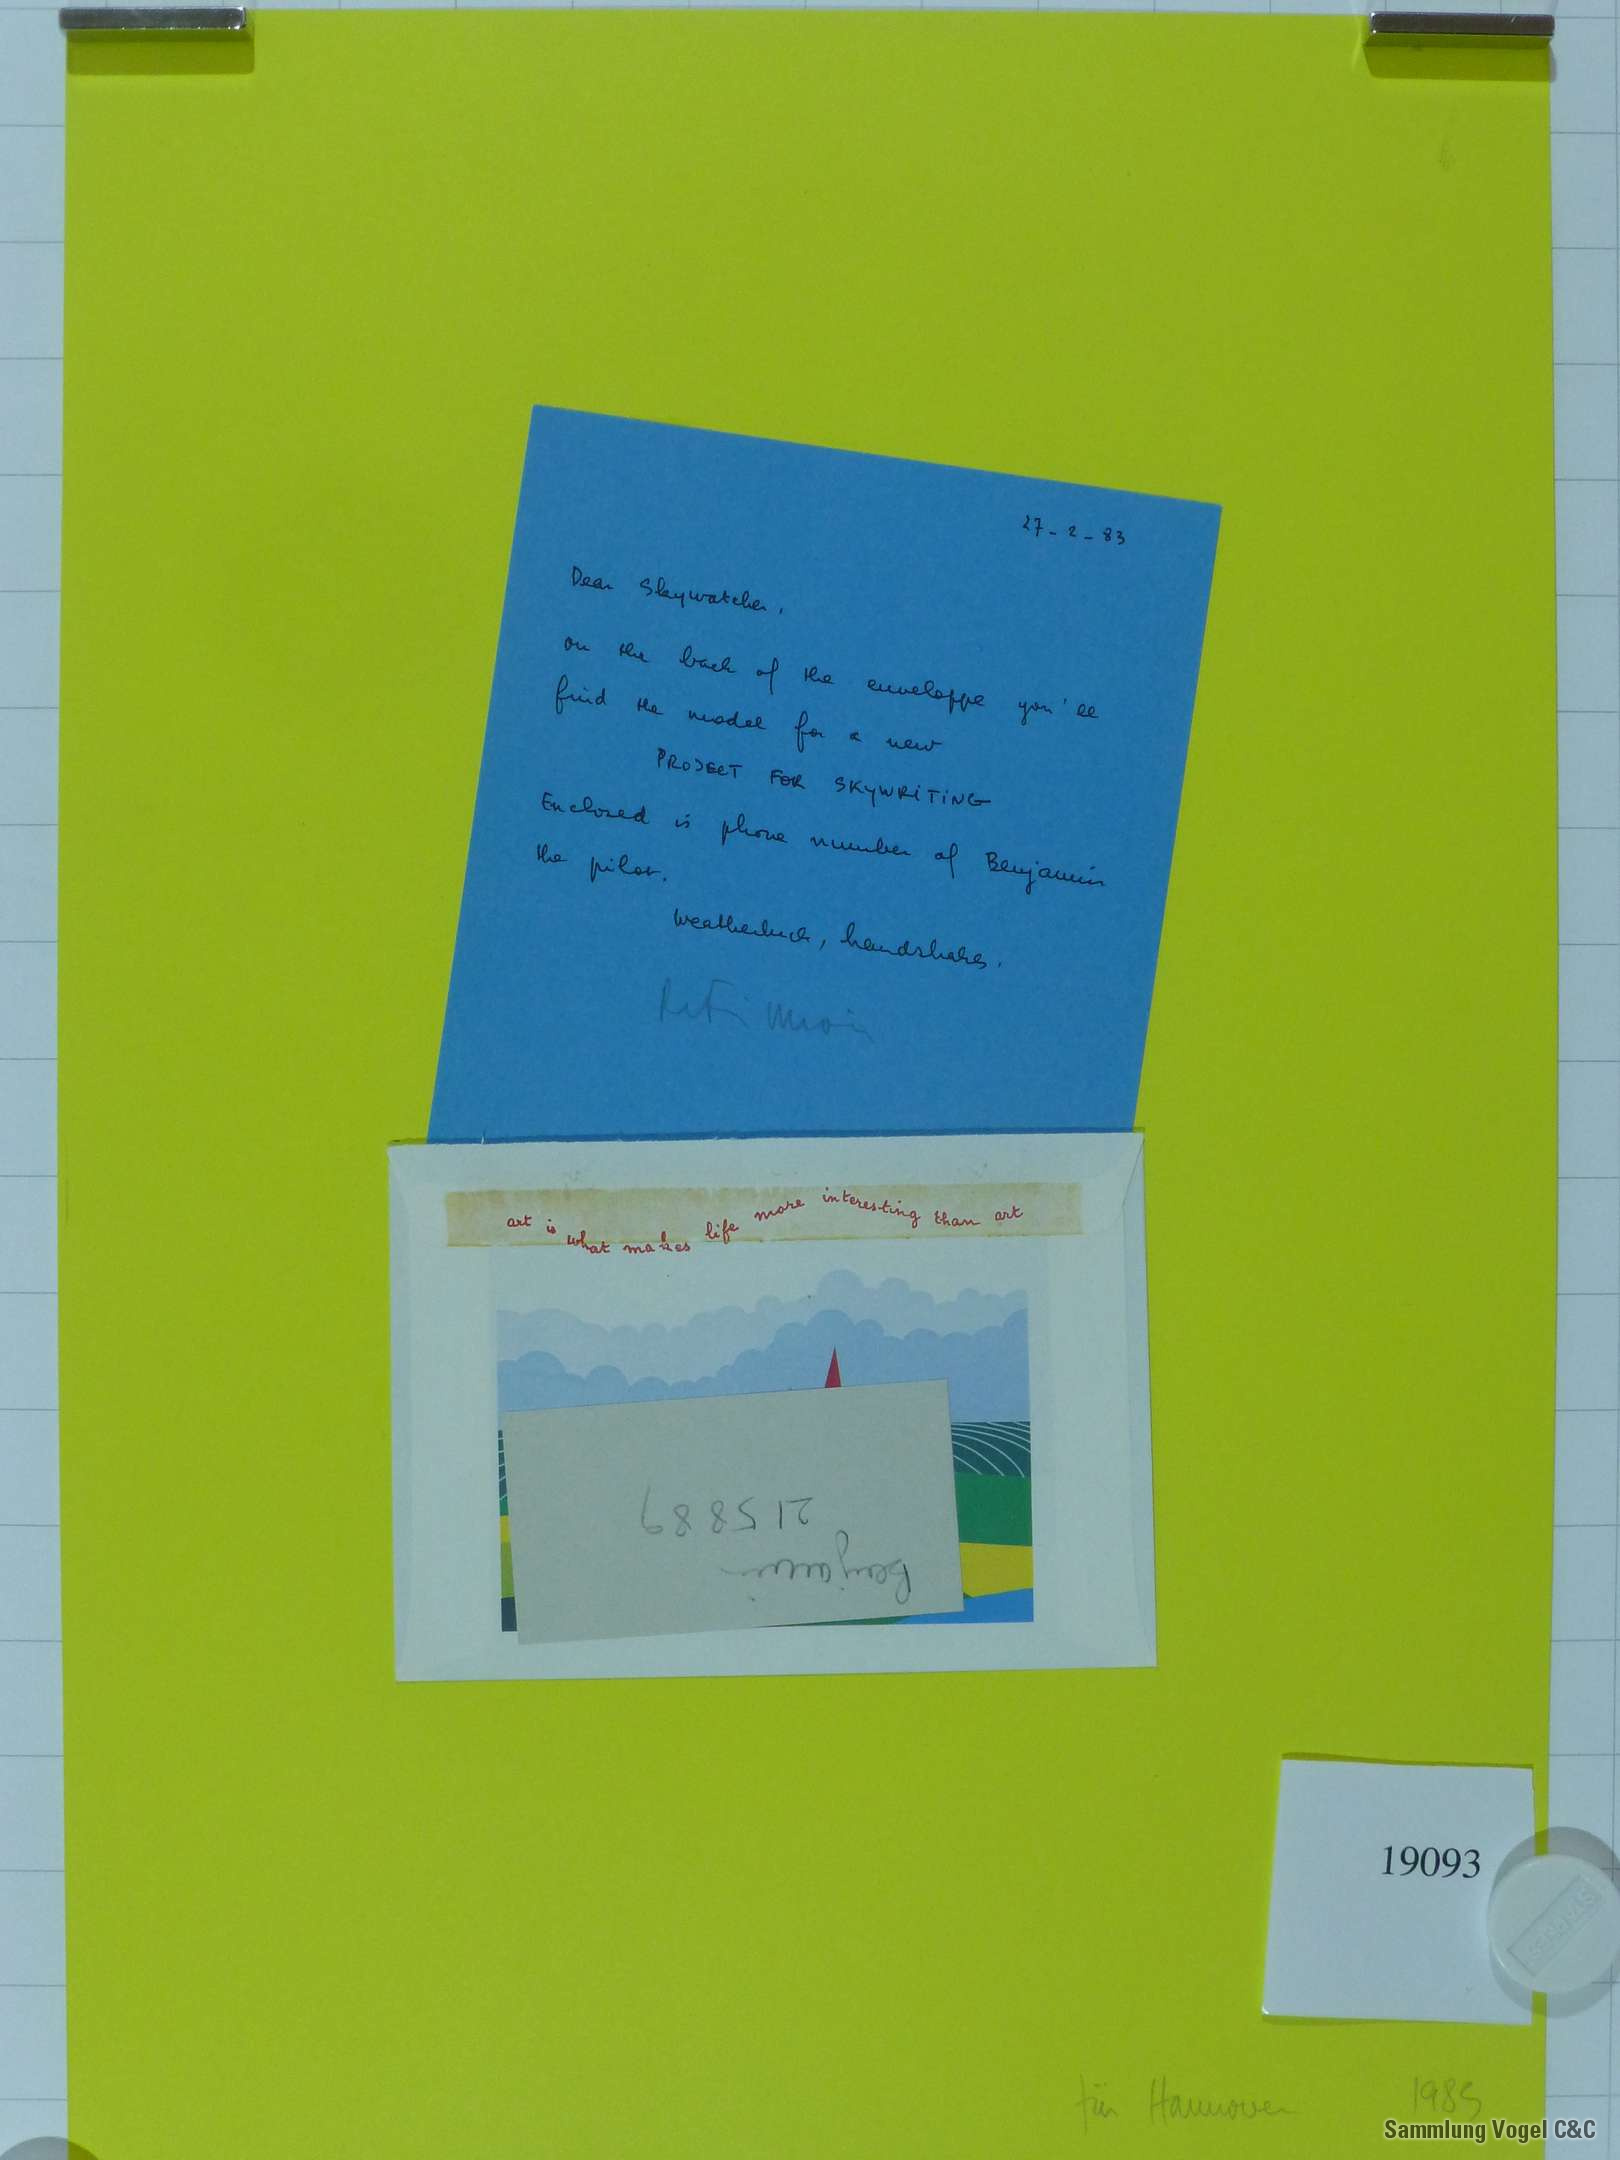 27-2-83
Dear Skywatcher,
on the back of the enveloppe you'll
find the model for a new
PROJECT FOR SKYWRITING
Enclosed is phone number of Benjamin
the pilot.
weatherluck, handshakes.
art is what makes life more interesting than art
Benjamin
215889
19093
für Hannover 1985
Sammlung Vogel C&C